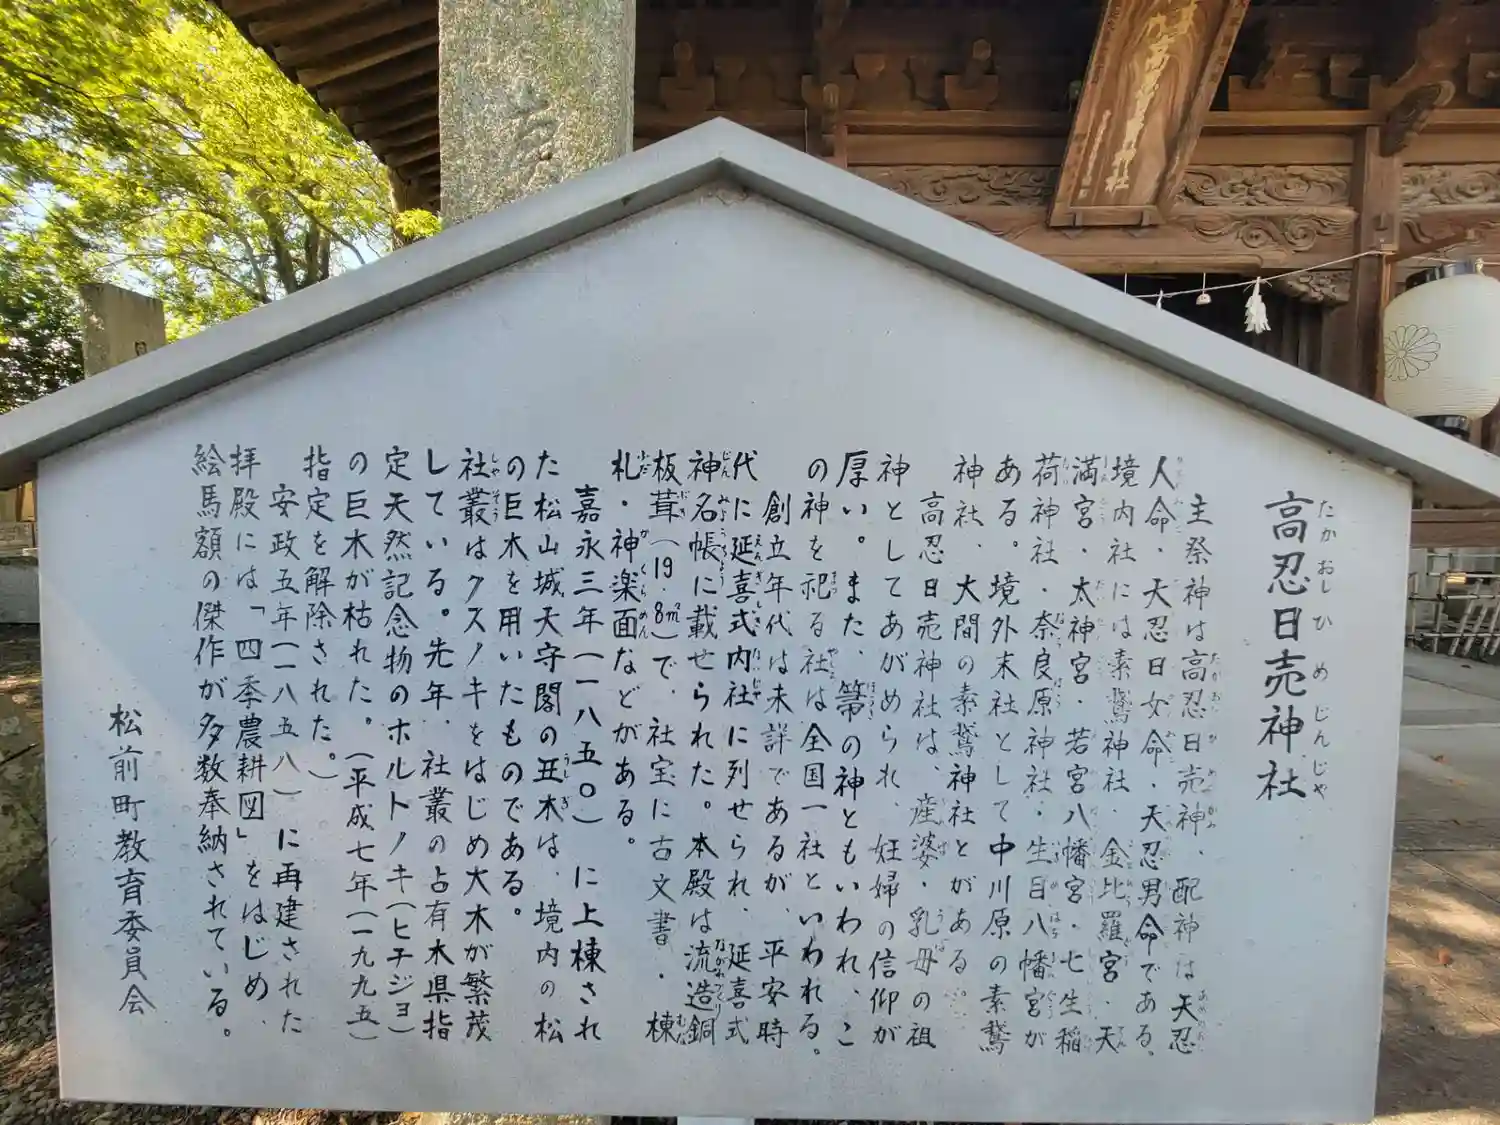 高忍日売神社
主祭神は高忍日売神、配神は天忍
人命・天忍日女命・天忍男命である。
境内社には素鵞神社・金比羅宮・天
満宮・太神宮・若宮八幡宮・七生稲
荷神社・奈良原神社・生目八幡宮が
ある。境外末社として中川原の素鵞
神社、大間の素鵞神社とがある。
高忍日売神社は、産婆・乳母の祖
神としてあがめられ、妊婦の信仰が
厚い。また、箒の神ともいわれ、こ
の神を祀る社は全国一社といわれる。
創立年代は未詳であるが、平安時
代に延喜式内社に列せられ、延喜式
神名帳に載せられた。本殿は流造銅
板葺(19.8㎡)で、社宝に古文書・棟
札・神楽面などがある。
嘉永三年(一八五〇)に上棟され
た松山城天守閣の丑木は、境内の松
の巨木を用いたものである。
社叢はクスノキをはじめ大木が繁茂
している。先年、社叢の占有木県指
定天然記念物のホルトノキ(ヒチジョ)
の巨木が枯れた。(平成七年(一九九五)
指定を解除された。)
安政五年(一八五八)に再建された
拝殿には「四季農耕図」をはじめ、
絵馬額の傑作が多数奉納されている。
松前町教育委員会